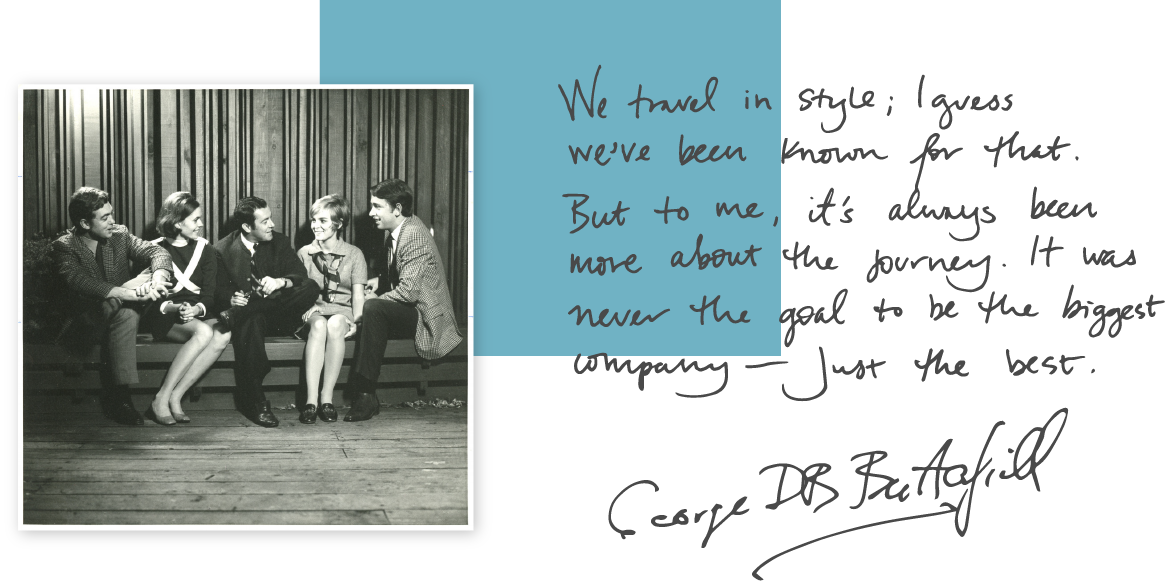 We travel in style; I guess
we've been known for that.
But to me, it's always been
more about the journey. It was
never the goal to be the biggest
company — Just the best.
George DB Buttafield